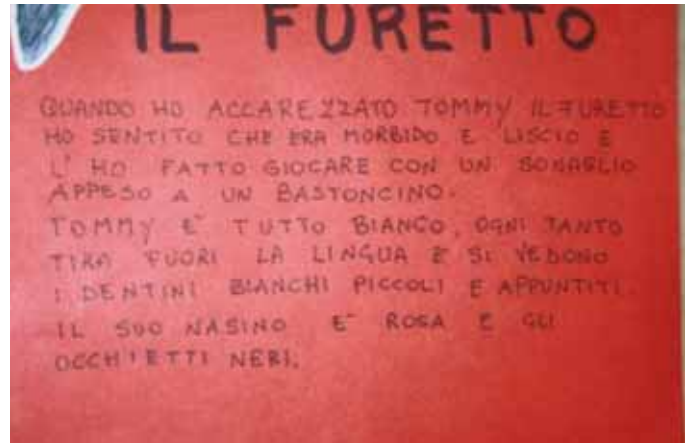 IL FURETTO
QUANDO HO ACCAREZZATO TOMMY IL FURETTO
HO SENTITO CHE ERA MORBIDO E LISCIO E
L'HO FATTO GIOCARE CON UN SONAGLIO
APPESO A UN BASTONCINO.
TOMMY E' TUTTO BIANCO, OGNI TANTO
TIRA FUORI LA LINGUA E SI VEDONO
I DENTINI BIANCHI PICCOLI E APPUNTITI.
IL SUO NASINO E' ROSA E GLI
OCCHIETTI NERI.